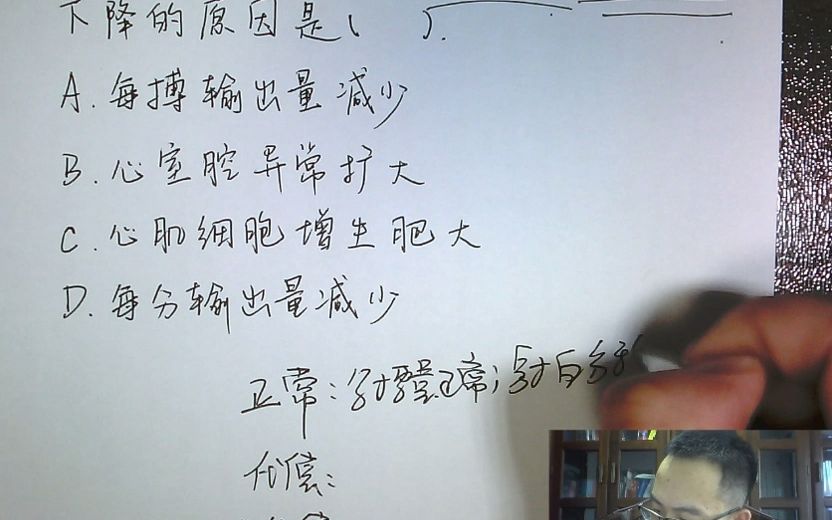 下降的原因是( ).
A. 每搏输出量减少
B. 心室腔异常扩大
C. 心肌细胞增生肥大
D. 每分输出量减少
正常: 射量正常; 射百分
代偿: